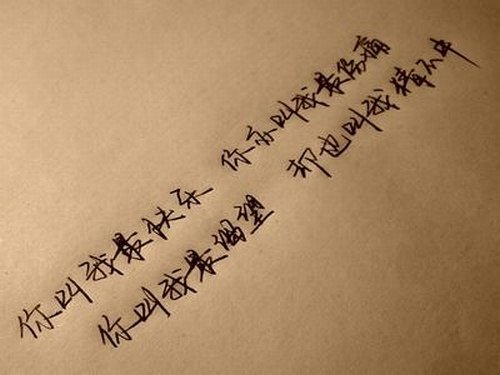 你叫我最快乐 你亦叫我最伤痛
你叫我最渴望 却也叫我猜不中